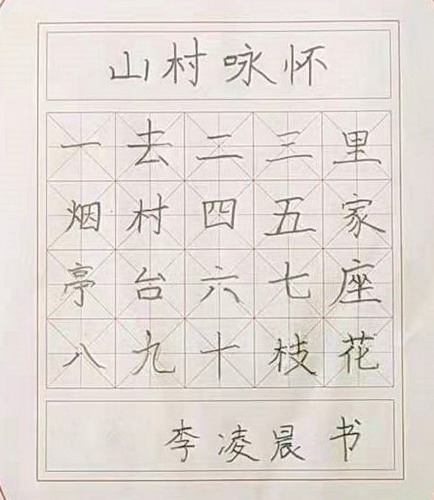 山村咏怀
一去二三里
烟村四五家
亭台六七座
八九十枝花
李凌晨书